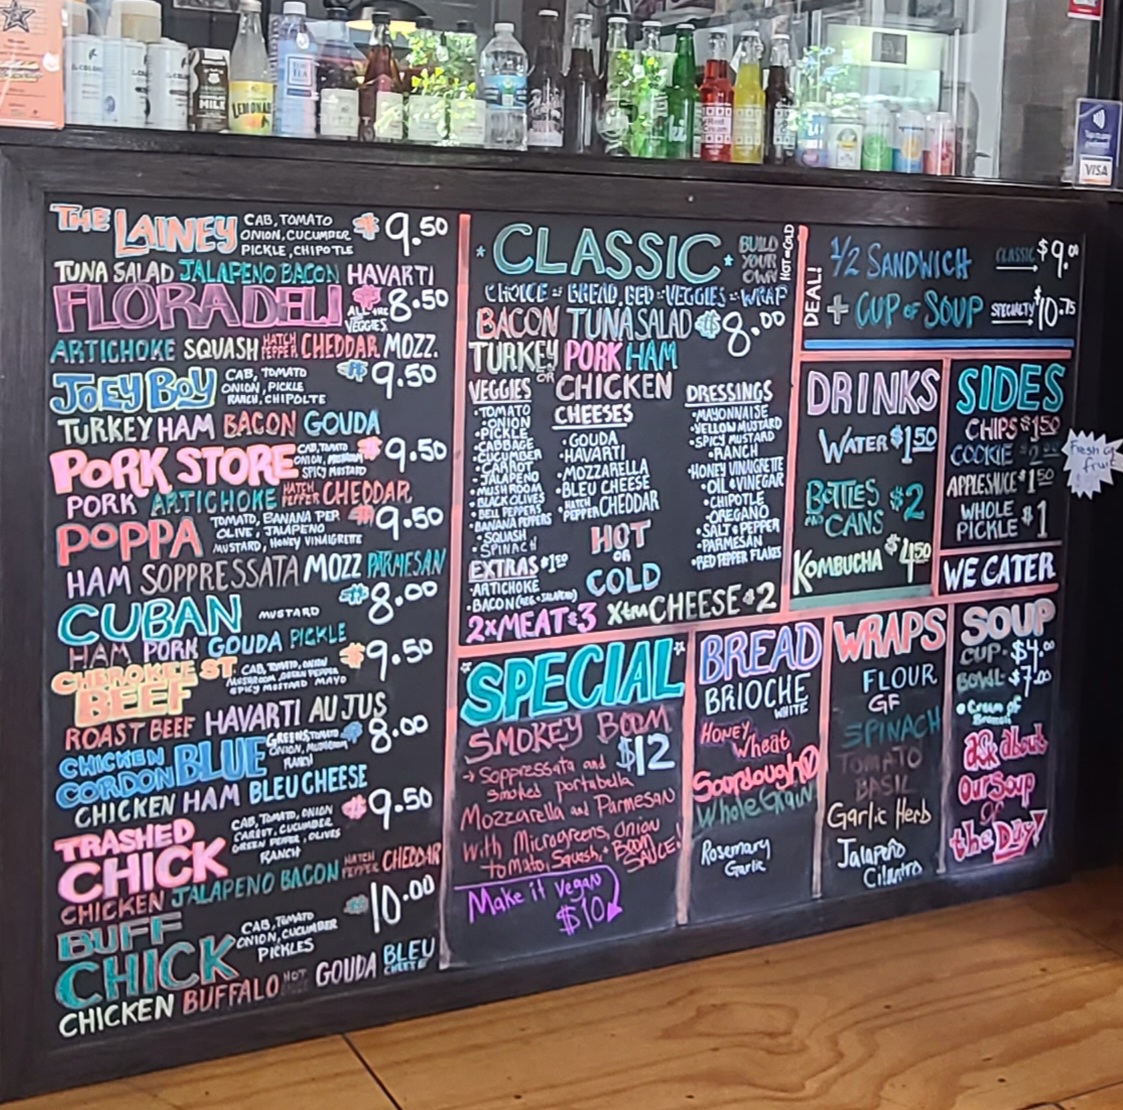 THE LAINEY CAB, TOMATO $9.50
ONION, CUCUMBER
PICKLE, CHIPOTLE
TUNA SALAD JALAPENO BACON HAVARTI
FLORA DELI ALL THE VEGGIES $8.50
ARTICHOKE SQUASH HATCH PEPPER CHEDDAR MOZZ.
JOEY BOY CAB, TOMATO $9.50
ONION, PICKLE
RANCH, CHIPOLTE
TURKEY HAM BACON GOUDA
PORK STORE CAB, TOMATO $9.50
SPICY MUSTARD
PORK ARTICHOKE HATCH PEPPER CHEDDAR
POPPA TOMATO, BANANA PEP $9.50
OLIVE, JALAPENO
MUSTARD, HONEY VINAIGRETTE
HAM SOPPRESSATA MOZZ PARMESAN
CUBAN MUSTARD $8.00
HAM PORK GOUDA PICKLE
CHEROKEE ST. BEEF CAB, TOMATO, ONION $9.50
MUSHROOM, GREEN PEPPER
SPICY MUSTARD MAYO
ROAST BEEF HAVARTI AU JUS
CHICKEN CORDON BLUE GREENS, TOMATO $8.00
ONION, MUSHROOM
RANCH
CHICKEN HAM BLEU CHEESE
TRASHED CHICK CAB, TOMATO, ONION $9.50
CARROT, CUCUMBER
GREEN PEPPER, OLIVES
RANCH
CHICKEN JALAPENO BACON HATCH PEPPER CHEDDAR
BUFF CHICK CAB, TOMATO $10.00
ONION, CUCUMBER
PICKLES
CHICKEN BUFFALO HOT GOUDA BLEU CHEESE
CLASSIC
BUILD YOUR OWN
HOT OR COLD
CHOICE OF BREAD, BED OF VEGGIES OR WRAP
BACON TUNA SALAD $8.00
TURKEY PORK HAM
OR CHICKEN
VEGGIES
• TOMATO
• ONION
• PICKLE
• CABBAGE
• CUCUMBER
• CARROT
• JALAPENO
• MUSHROOM
• BLACK OLIVES
• BELL PEPPERS
• BANANA PEPPERS
• SQUASH
• SPINACH
EXTRAS $1.50
• ARTICHOKE
• BACON (REG + JALAPENO)
CHEESES
• GOUDA
• HAVARTI
• MOZZARELLA
• BLEU CHEESE
• HATCH PEPPER CHEDDAR
HOT
OR
COLD
DRESSINGS
• MAYONNAISE
• YELLOW MUSTARD
• SPICY MUSTARD
• RANCH
• HONEY VINAIGRETTE
• OIL & VINEGAR
• CHIPOTLE
• OREGANO
• SALT & PEPPER
• PARMESAN
• RED PEPPER FLAKES
2X MEAT $3 Xtra CHEESE $2
DEAL!
1/2 SANDWICH CLASSIC → $9.00
+ CUP OF SOUP SPECIALTY → $10.75
DRINKS
WATER $1.50
BOTTLES AND CANS $2
KOMBUCHA $4.50
SIDES
CHIPS $1.50
COOKIE
APPLESAUCE $1.50
WHOLE PICKLE $1
WE CATER
SPECIAL
SMOKEY BOOM
$12
→ Soppressata and
smoked portabella
Mozzarella and Parmesan
with Microgreens, Onion
tomato, Squash, + BOOM SAUCE!
Make it vegan
$10
BREAD
BRIOCHE
WHITE
HONEY Wheat
Sourdough
Whole Grain
Rosemary
Garlic
WRAPS
FLOUR
GF
SPINACH
TOMATO
BASIL
Garlic Herb
Jalapeño
Cilantro
SOUP
CUP - $4.00
BOWL - $7.00
• Cream of
ask about
our Soup
of
the Day!
fruit
LEMONADE
MILK
VISA